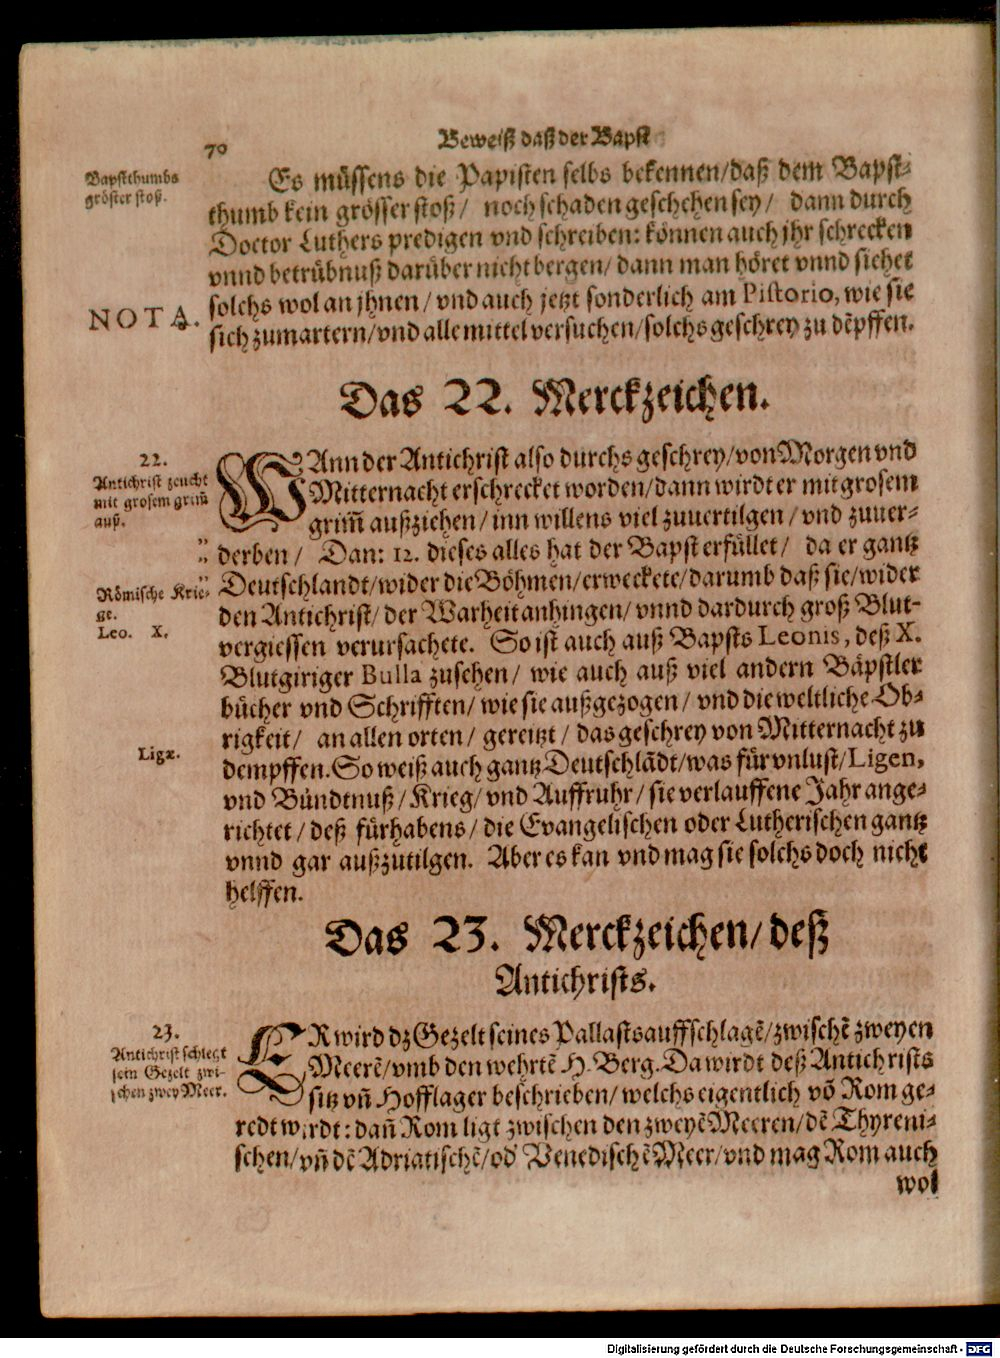 70
Beweiß daß der Bapst
Bapstthumbs
gröster stoß.
Es müssens die Papisten selbs bekennen/daß dem Bapst-
thumb kein grösser stoß/ noch schaden geschehen sey/ dann durch
Doctor Luthers predigen vnd schreiben: können auch jhr schrecken
vnnd betrübnuß darüber nicht bergen/ dann man höret vnnd siehet
NOTA.
solchs wol an jhnen/ vnd auch jetzt sonderlich am Pistorio, wie sie
sich zumartern/vnd alle mittel versuchen/solchs geschrey zu dẽpffen.
Das 22. Merckzeichen.
22.
Antichrist zeucht
mit grosem grim̃
auß.
WAnn der Antichrist also durchs geschrey/von Morgen vnd
Mitternacht erschrecket worden/dann wirdt er mit grosem
grim̃ außziehen/ inn willens viel zuuertilgen/ vnd zuuer-
" derben/ Dan: 12. dieses alles hat der Bapst erfüllet/ da er gantz
Römische Krie-
ge.
Leo. X.
" Deutschlandt/wider die Böhmen/erweckete/darumb daß sie/wider
den Antichrist/ der Warheit anhingen/ vnnd dardurch groß Blut-
vergiessen verursachete. So ist auch auß Bapsts Leonis, deß X.
Blutgiriger Bulla zusehen/ wie auch auß viel andern Bäpstler
bücher vnd Schrifften/ wie sie außgezogen/ vnd die weltliche Ob-
rigkeit/ an allen orten/ gereitzt/ das geschrey von Mitternacht zu
Ligæ.
dempffen. So weiß auch gantz Deutschlãdt/was für vnlust/Ligen,
vnd Bündtnuß/ Krieg/ vnd Auffruhr/ sie verlauffene Jahr ange-
richtet/ deß fürhabens/ die Evangelischen oder Lutherischen gantz
vnnd gar außzutilgen. Aber es kan vnd mag sie solchs doch nicht
helffen.
Das 23. Merckzeichen/ deß
Antichrists.
23.
Antichrist schlegt
sein Gezelt zwi-
schen zwey Meer.
ER wird dz Gezelt seines Pallasts auffschlagẽ/zwischẽ zweyen
Meerẽ/vmb den wehrtẽ H. Berg. Da wirdt deß Antichrists
sitz vñ Hofflager beschrieben/ welchs eigentlich võ Rom ge-
redt wirdt: dañ Rom ligt zwischen den zweyẽ Meeren/dẽ Thyreni-
schen/vñ dẽ Adriatischẽ/od' Venedischẽ Meer/vnd mag Rom auch
wol
Digitalisierung gefördert durch die Deutsche Forschungsgemeinschaft - DFG